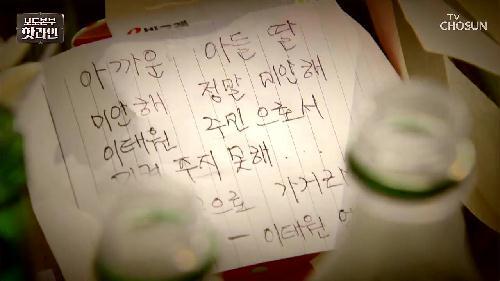 보도본부
핫라인
TV
CHOSUN
아까운 아들 딸
미안해 정말 미안해
이태원 주민으로서
주지 못해..
으로 가거라
- 이태원